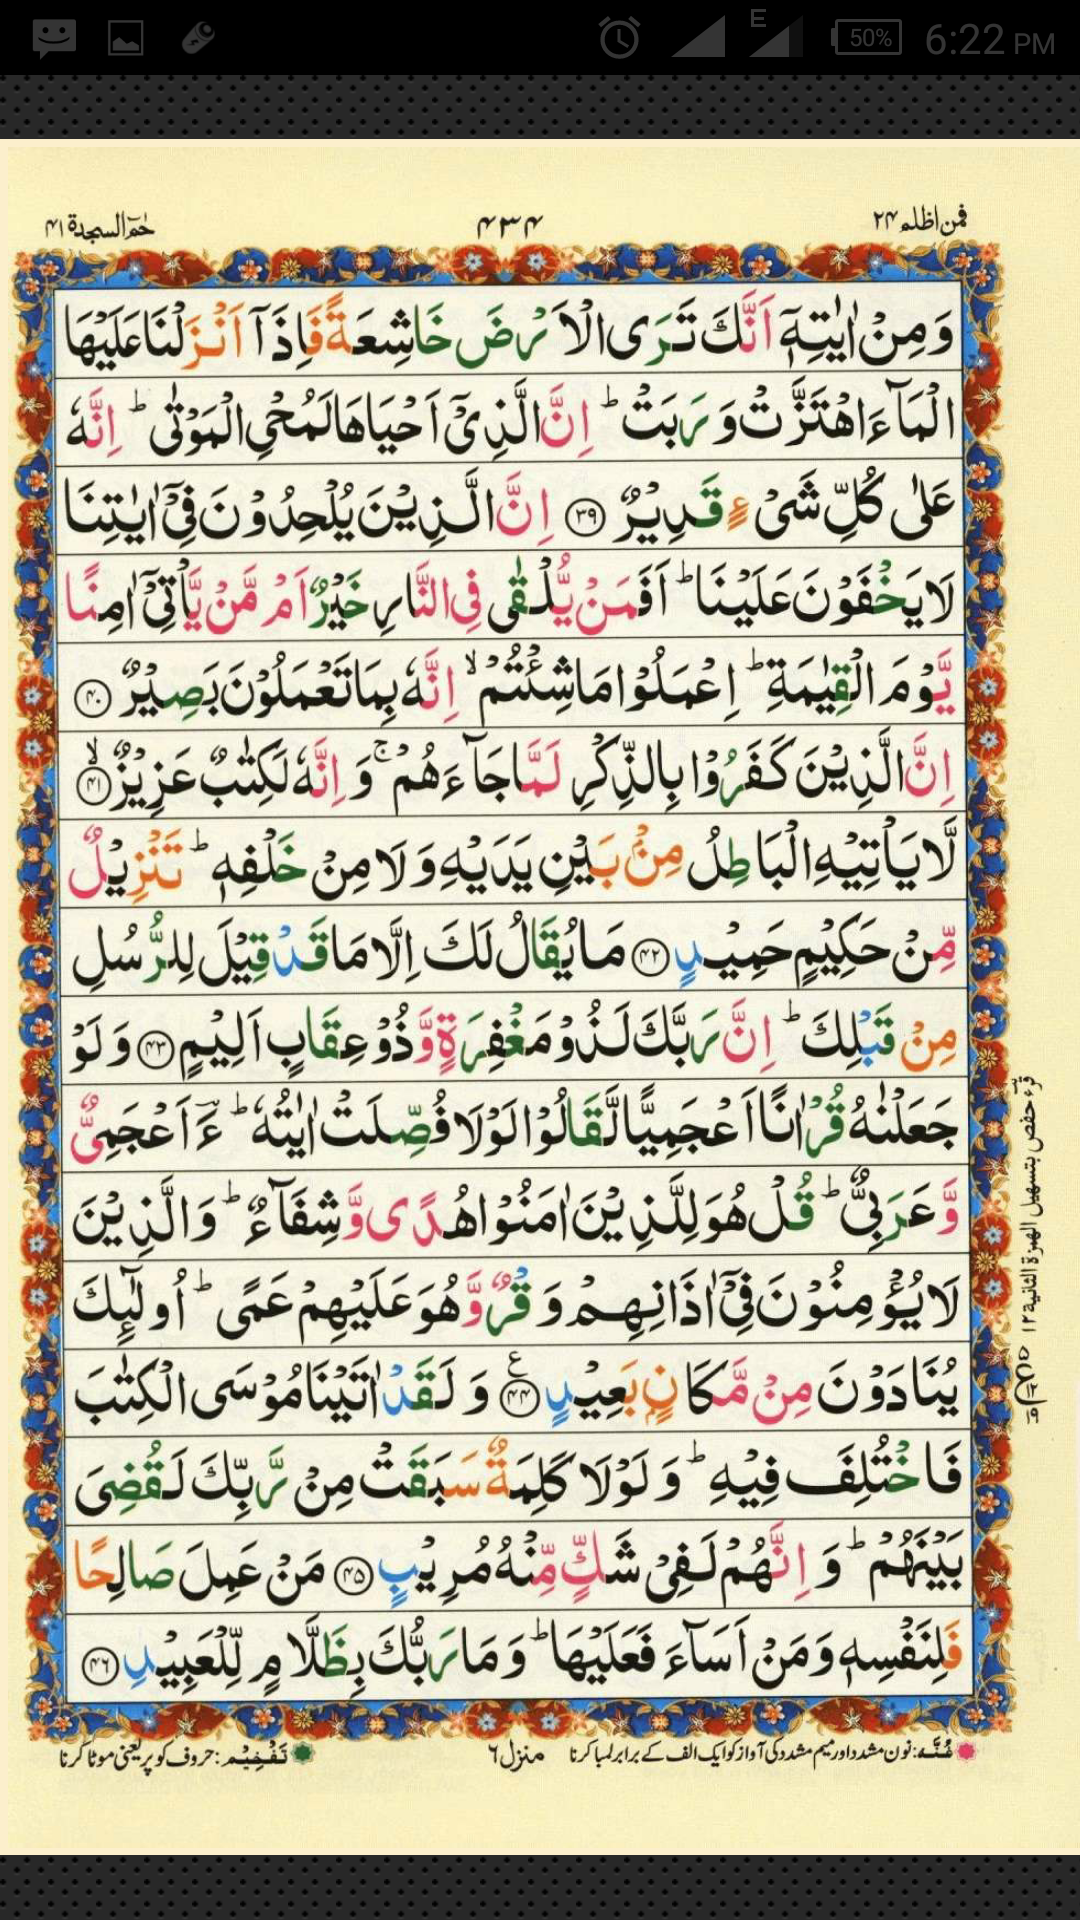 50% 6:22 PM
E
فمن اظلم ۲۴
۴۳۴
حٰمٓ السجدة ۴۱
وَمِنْ اٰيٰتِهٖۤ اَنَّكَ تَرَى الْاَرْضَ خَاشِعَةً فَاِذَاۤ اَنْزَلْنَا عَلَيْهَا
الْمَآءَ اهْتَزَّتْ وَرَبَتْ ؕ اِنَّ الَّذِىْۤ اَحْيَاهَا لَمُحْىِ الْمَوْتٰى ؕ اِنَّهٗ
عَلٰى كُلِّ شَىْءٍ قَدِيْرٌ ۳۹ اِنَّ الَّذِيْنَ يُلْحِدُوْنَ فِىْۤ اٰيٰتِنَا
لَا يَخْفَوْنَ عَلَيْنَا ؕ اَفَمَنْ يُّلْقٰى فِى النَّارِ خَيْرٌ اَمْ مَّنْ يَّاْتِىْۤ اٰمِنًا
يَّوْمَ الْقِيٰمَةِ ؕ اِعْمَلُوْا مَا شِئْتُمْ ۙ اِنَّهٗ بِمَا تَعْمَلُوْنَ بَصِيْرٌ ۴۰
اِنَّ الَّذِيْنَ كَفَرُوْا بِالذِّكْرِ لَمَّا جَآءَهُمْ ۚ وَاِنَّهٗ لَكِتٰبٌ عَزِيْزٌ ۙ ۴۱
لَّا يَاْتِيْهِ الْبَاطِلُ مِنْۢ بَيْنِ يَدَيْهِ وَلَا مِنْ خَلْفِهٖ ؕ تَنْزِيْلٌ
مِّنْ حَكِيْمٍ حَمِيْدٍ ۴۲ مَا يُقَالُ لَكَ اِلَّا مَا قَدْ قِيْلَ لِلرُّسُلِ
مِنْ قَبْلِكَ ؕ اِنَّ رَبَّكَ لَذُوْ مَغْفِرَةٍ وَّذُوْ عِقَابٍ اَلِيْمٍ ۴۳ وَلَوْ
جَعَلْنٰهُ قُرْاٰنًا اَعْجَمِيًّا لَّقَالُوْا لَوْلَا فُصِّلَتْ اٰيٰتُهٗ ؕ ءَاَعْجَمِىٌّ
وَّعَرَبِىٌّ ؕ قُلْ هُوَ لِلَّذِيْنَ اٰمَنُوْا هُدًى وَّشِفَآءٌ ؕ وَالَّذِيْنَ
لَا يُؤْمِنُوْنَ فِىْۤ اٰذَانِهِمْ وَقْرٌ وَّهُوَ عَلَيْهِمْ عَمًى ؕ اُولٰٓئِكَ
يُنَادَوْنَ مِنْ مَّكَانٍۭ بَعِيْدٍ ۴۴ ع وَلَقَدْ اٰتَيْنَا مُوْسَى الْكِتٰبَ
فَاخْتُلِفَ فِيْهِ ؕ وَلَوْلَا كَلِمَةٌ سَبَقَتْ مِنْ رَّبِّكَ لَقُضِىَ
بَيْنَهُمْ ؕ وَاِنَّهُمْ لَفِىْ شَكٍّ مِّنْهُ مُرِيْبٍ ۴۵ مَنْ عَمِلَ صَالِحًا
فَلِنَفْسِهٖ وَمَنْ اَسَآءَ فَعَلَيْهَا ؕ وَمَا رَبُّكَ بِظَلَّامٍ لِّلْعَبِيْدِ ۴۶
قرء حفص بتسهيل الهمزة الثانية ۱۲
غُنَّه: نون مشدد اور میم مشدد کی آواز کو ایک الف کے برابر لمبا کرنا
منزل ٦
تَفْخِيْم: حروف کو پر یعنی موٹا کرنا